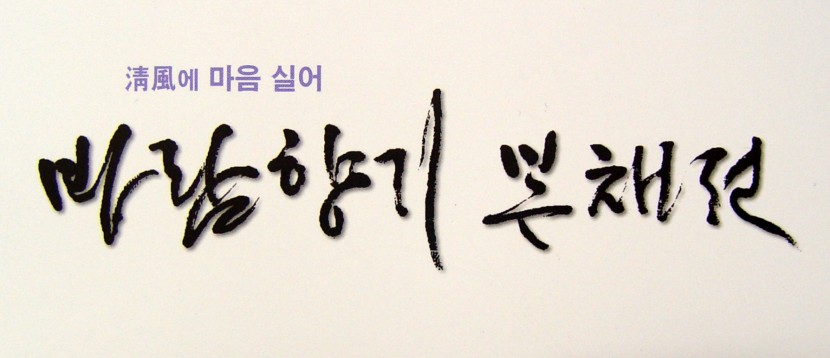 淸風에 마음 실어
바람향기 부채전